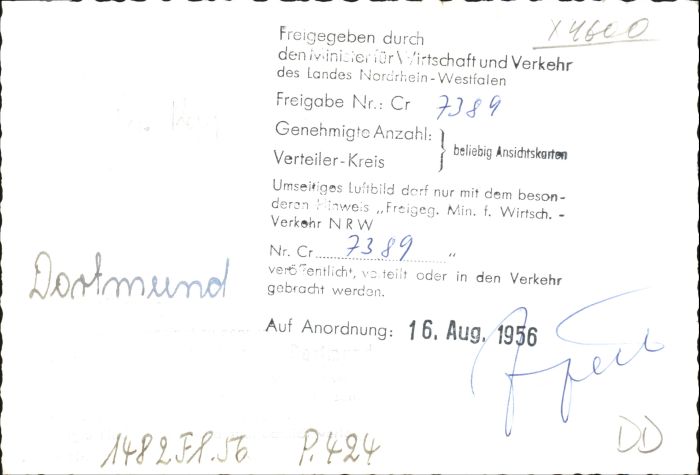 X4600
Freigegeben durch
den Minister für Wirtschaft und Verkehr
des Landes Nordrhein-Westfalen
Freigabe Nr.: Cr 7389
Genehmigte Anzahl:
Verteiler-Kreis
} beliebig Ansichtskarten
Umseitiges Luftbild darf nur mit dem beson-
deren Hinweis „Freigeg. Min. f. Wirtsch. -
Verkehr NRW
Nr. Cr 7389 "
veröffentlicht, verteilt oder in den Verkehr
gebracht werden.
Dortmund
Auf Anordnung: 16. Aug. 1956
1482 F1.56 P.424
DD